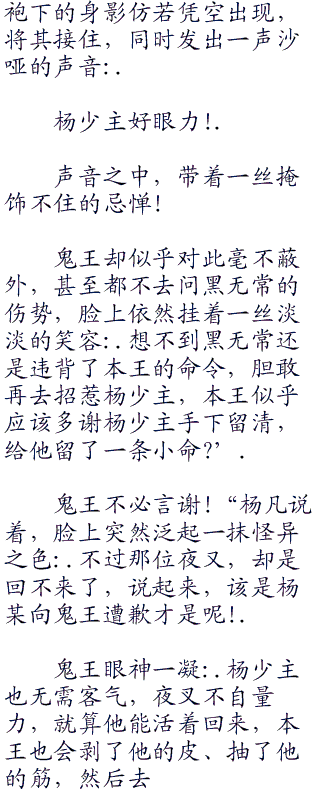 袍下的身影仿若凭空出现，
将其接住，同时发出一声沙
哑的声音:.
杨少主好眼力!.
声音之中，带着一丝掩
饰不住的忌惮！
鬼王却似乎对此毫不蔽
外，甚至都不去问黑无常的
伤势，脸上依然挂着一丝淡
淡的笑容:.想不到黑无常还
是违背了本王的命令，胆敢
再去招惹杨少主，本王似乎
应该多谢杨少主手下留清，
给他留了一条小命?’.
鬼王不必言谢！“杨凡说
着，脸上突然泛起一抹怪异
之色:.不过那位夜叉，却是
回不来了，说起来，该是杨
某向鬼王遭歉才是呢!.
鬼王眼神一凝:.杨少主
也无需客气，夜叉不自量
力，就算他能活着回来，本
王也会剥了他的皮、抽了他
的筋，然后去